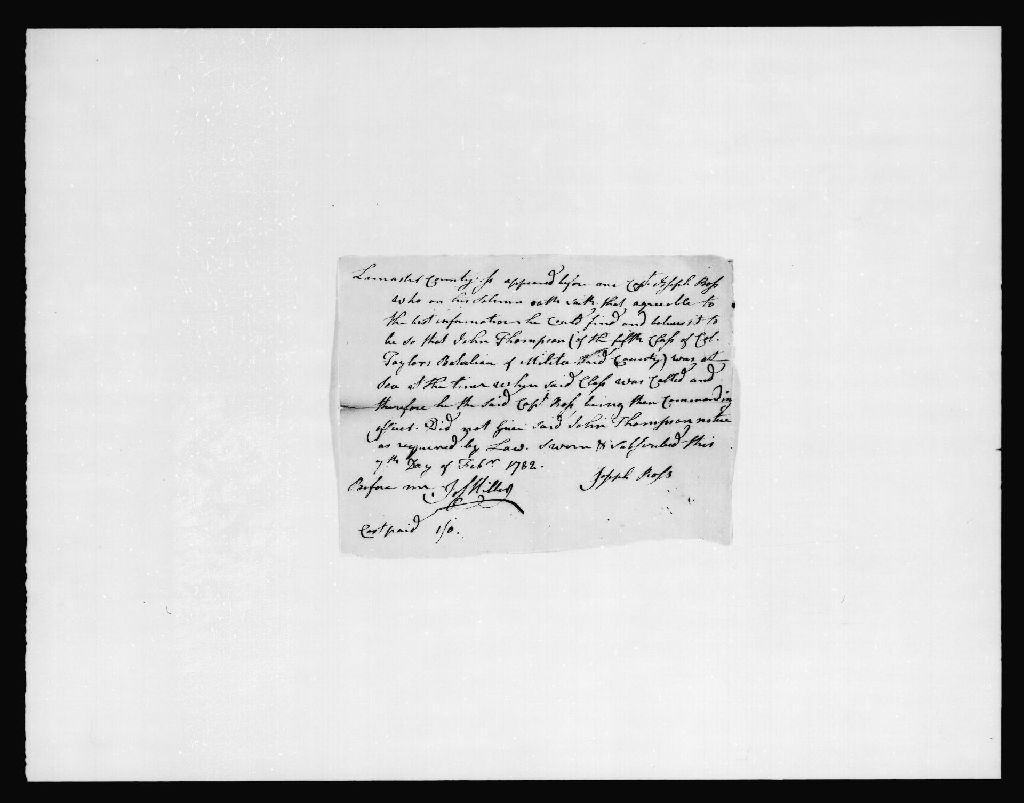 Lancaster County Ss appeared before me Capt. Joseph Ross
who on his Solemn oath saith that agreeable to
the best information he could find and believes it to
be so that John Thompson (of the fifth Class of Col.
Taylors Batalian of Milita Said County) was at
Sea at the time when said Class was Called and
therefore he the Said Capt. Ross being then Commanding
officer. Did not Give said John Thompson notice
as required by Law. Sworn & Subscribed this
7th Day of Febr. 1782.
Before me. Jos Miller Joseph Ross
Cost paid 1/0.